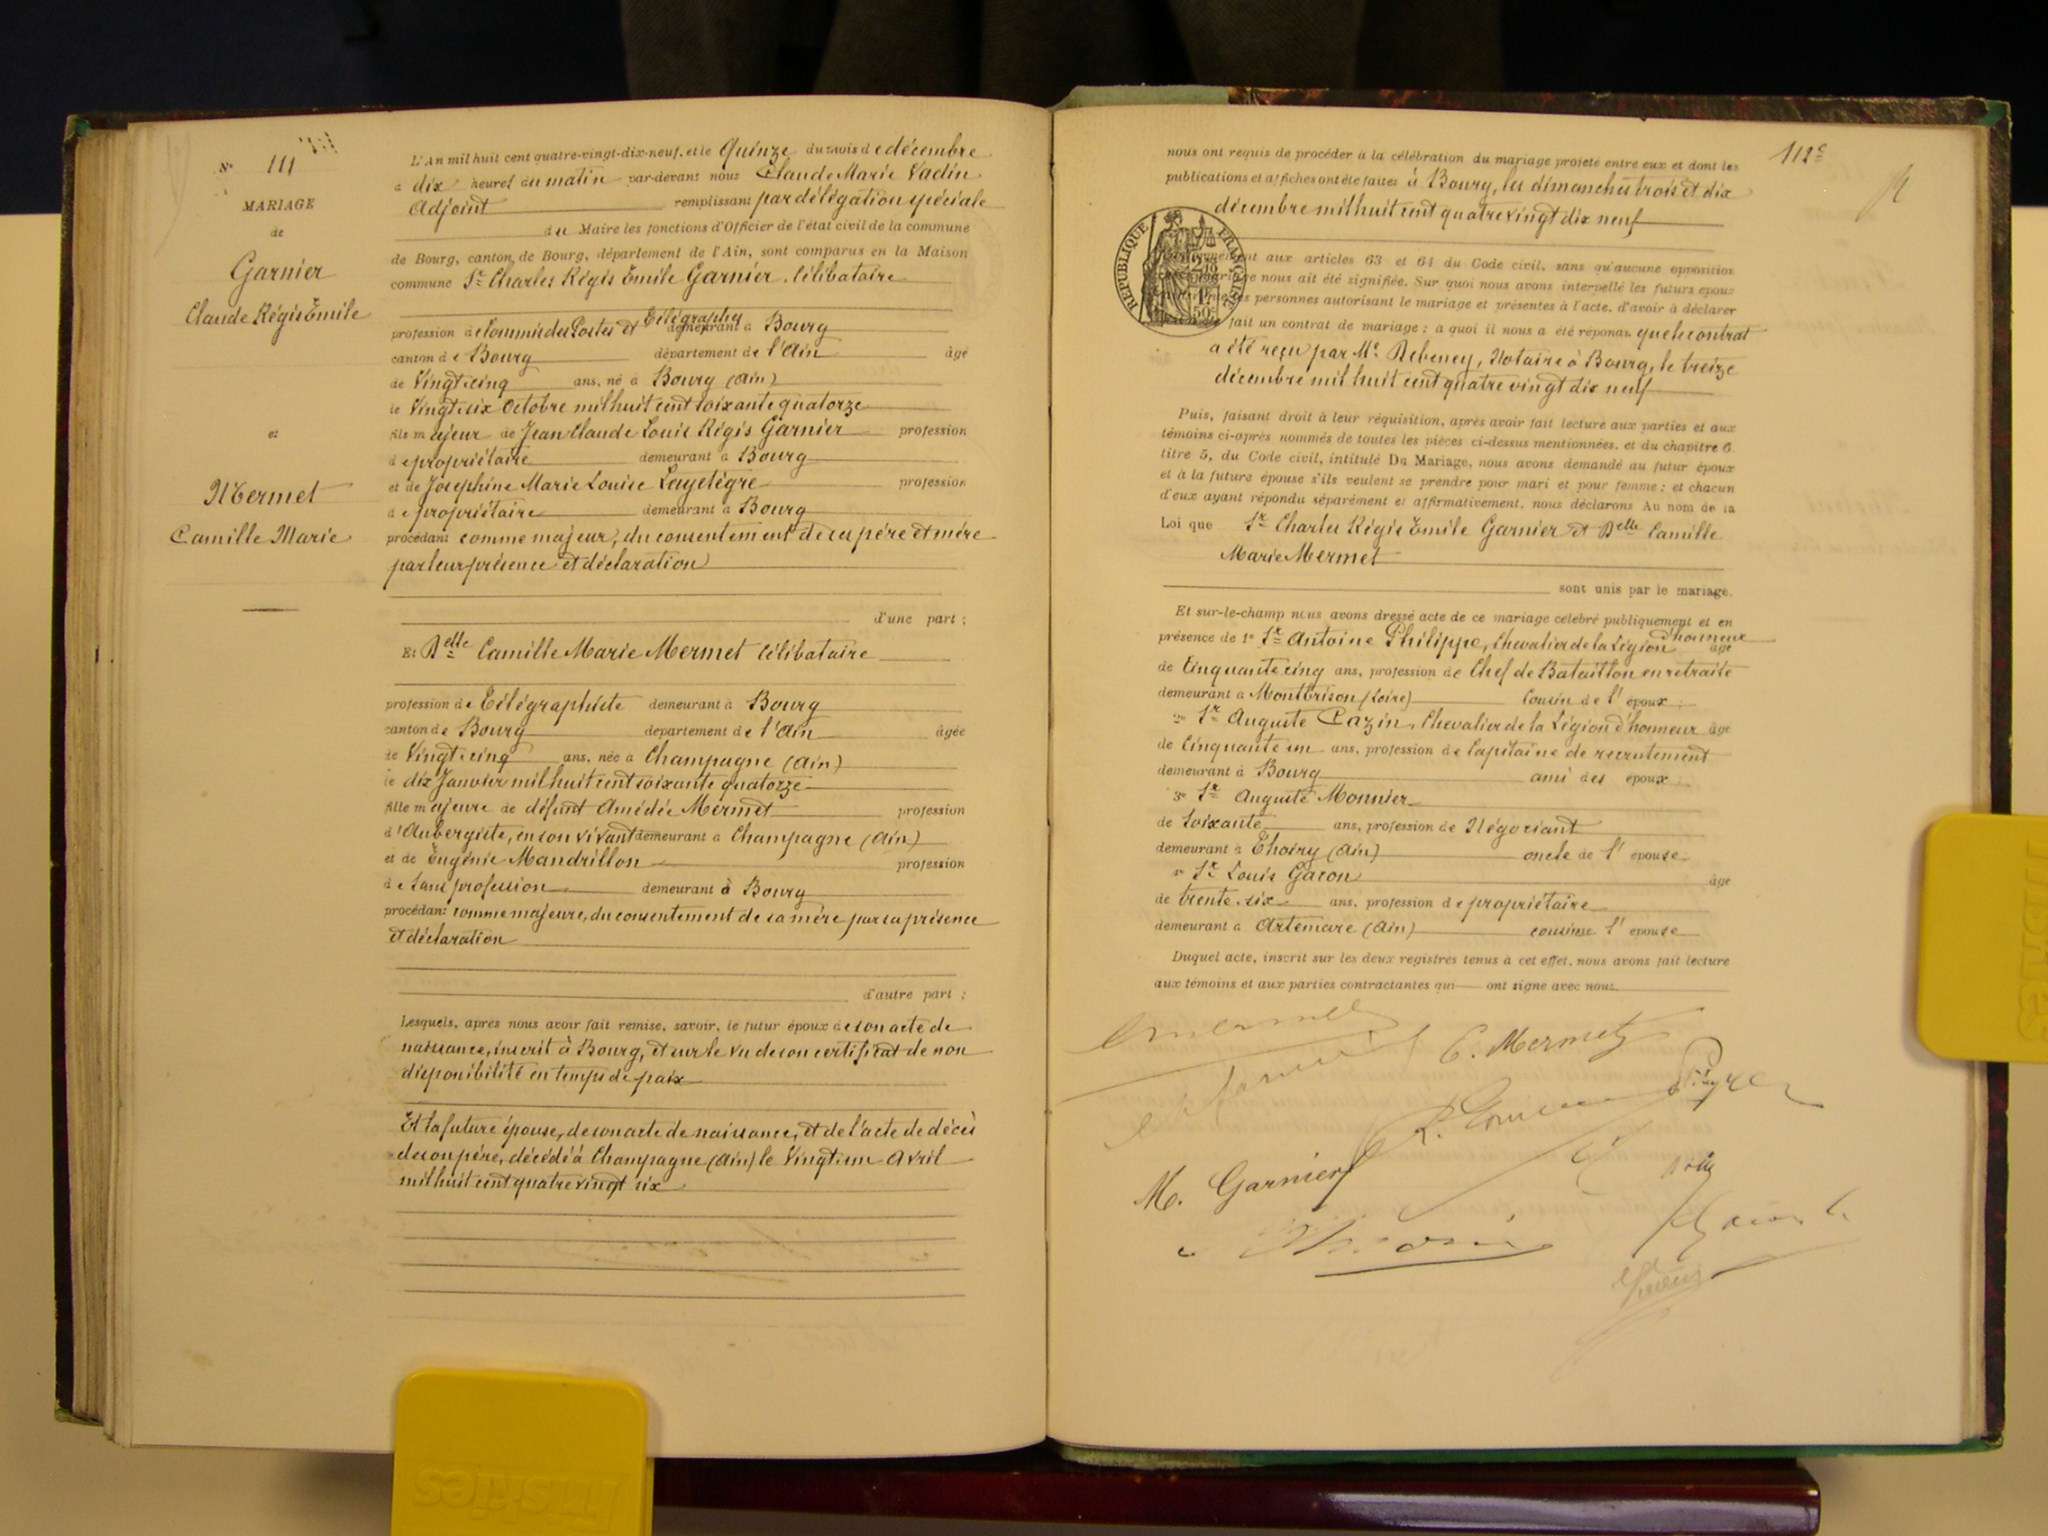 N° 111
MARIAGE
de
Garnier
Claude Régis Émile
et
Mermet
Camille Marie
L'An mil huit cent quatre-vingt-dix-neuf, et le Quinze du mois de décembre
à dix heures du matin par-devant nous Claude Marie Vadin
Adjoint remplissant par délégation spéciale
du Maire les fonctions d'Officier de l'état civil de la commune
de Bourg, canton de Bourg, département de l'Ain, sont comparus en la Maison
commune Sr Charles Régis Émile Garnier, célibataire
profession de Commis des Postes et Télégraphes demeurant à Bourg
canton de Bourg département de l'Ain âgé
de Vingt cinq ans, né à Bourg (Ain)
le Vingt six Octobre mil huit cent soixante quatorze
fils majeur de Jean Claude Louis Régis Garnier profession
de propriétaire demeurant à Bourg
et de Joséphine Marie Louise profession
de propriétaire demeurant à Bourg
procédant comme majeur, du consentement de ses père et mère
par leur présence et déclaration
d'une part ;
Et Delle Camille Marie Mermet célibataire
profession de Télégraphiste demeurant à Bourg
canton de Bourg département de l'Ain âgée
de Vingt cinq ans, née à Champagne (Ain)
le dix Janvier mil huit cent soixante quatorze
fille majeure de défunt Amédée Mermet profession
d'Aubergiste, en son vivant demeurant à Champagne (Ain)
et de Eugénie Mandrillon profession
de sans profession demeurant à Bourg
procédant comme majeure, du consentement de sa mère par sa présence
et déclaration
d'autre part ;
Lesquels, après nous avoir fait remise, savoir, le futur époux de son acte de
naissance, inscrit à Bourg, et sur le vu de son certificat de non
disponibilité en temps de paix
Et la future épouse, de son acte de naissance, et de l'acte de décès
de son père, décédé à Champagne (Ain) le Vingt un Avril
mil huit cent quatre vingt six
112e
nous ont requis de procéder à la célébration du mariage projeté entre eux et dont les
publications et affiches ont été faites à Bourg, les dimanches trois et dix
décembre mil huit cent quatre vingt dix neuf
RÉPUBLIQUE FRANÇAISE
aux articles 63 et 64 du Code civil, sans qu'aucune opposition
nous ait été signifiée. Sur quoi nous avons interpellé les futurs époux
personnes autorisant le mariage et présentes à l'acte, d'avoir à déclarer
fait un contrat de mariage ; à quoi il nous a été répondu que le contrat
a été reçu par Me Rebeney, Notaire à Bourg, le treize
décembre mil huit cent quatre vingt dix neuf
Puis, faisant droit à leur réquisition, après avoir fait lecture aux parties et aux
témoins ci-après nommés de toutes les pièces ci-dessus mentionnées, et du chapitre 6
titre 5, du Code civil, intitulé Du Mariage, nous avons demandé au futur époux
et à la future épouse s'ils veulent se prendre pour mari et pour femme ; et chacun
d'eux ayant répondu séparément et affirmativement, nous déclarons Au nom de la
Loi que Sr Charles Régis Émile Garnier et Delle Camille
Marie Mermet
sont unis par le mariage.
Et sur-le-champ nous avons dressé acte de ce mariage célébré publiquement et en
présence de 1° Sr Antoine Philippe, Chevalier de la Légion d'honneur âgé
de Cinquante cinq ans, profession de Chef de Bataillon en retraite
demeurant à Montbrison (Loire) Cousin de l'époux ;
2° Sr Auguste Cazin, Chevalier de la Légion d'honneur âgé
de Cinquante un ans, profession de Capitaine de recrutement
demeurant à Bourg ami des époux ;
3° Sr Auguste Monnier
de Soixante ans, profession de Négociant
demeurant à Thoiry (Ain) oncle de l'épouse
Sr Louis Gacon âgé
de trente six ans, profession de propriétaire
demeurant à Artemare (Ain) cousin de l'épouse
Duquel acte, inscrit sur les deux registres tenus à cet effet, nous avons fait lecture
aux témoins et aux parties contractantes qui ont signé avec nous
C. Mermet
M. Garnier